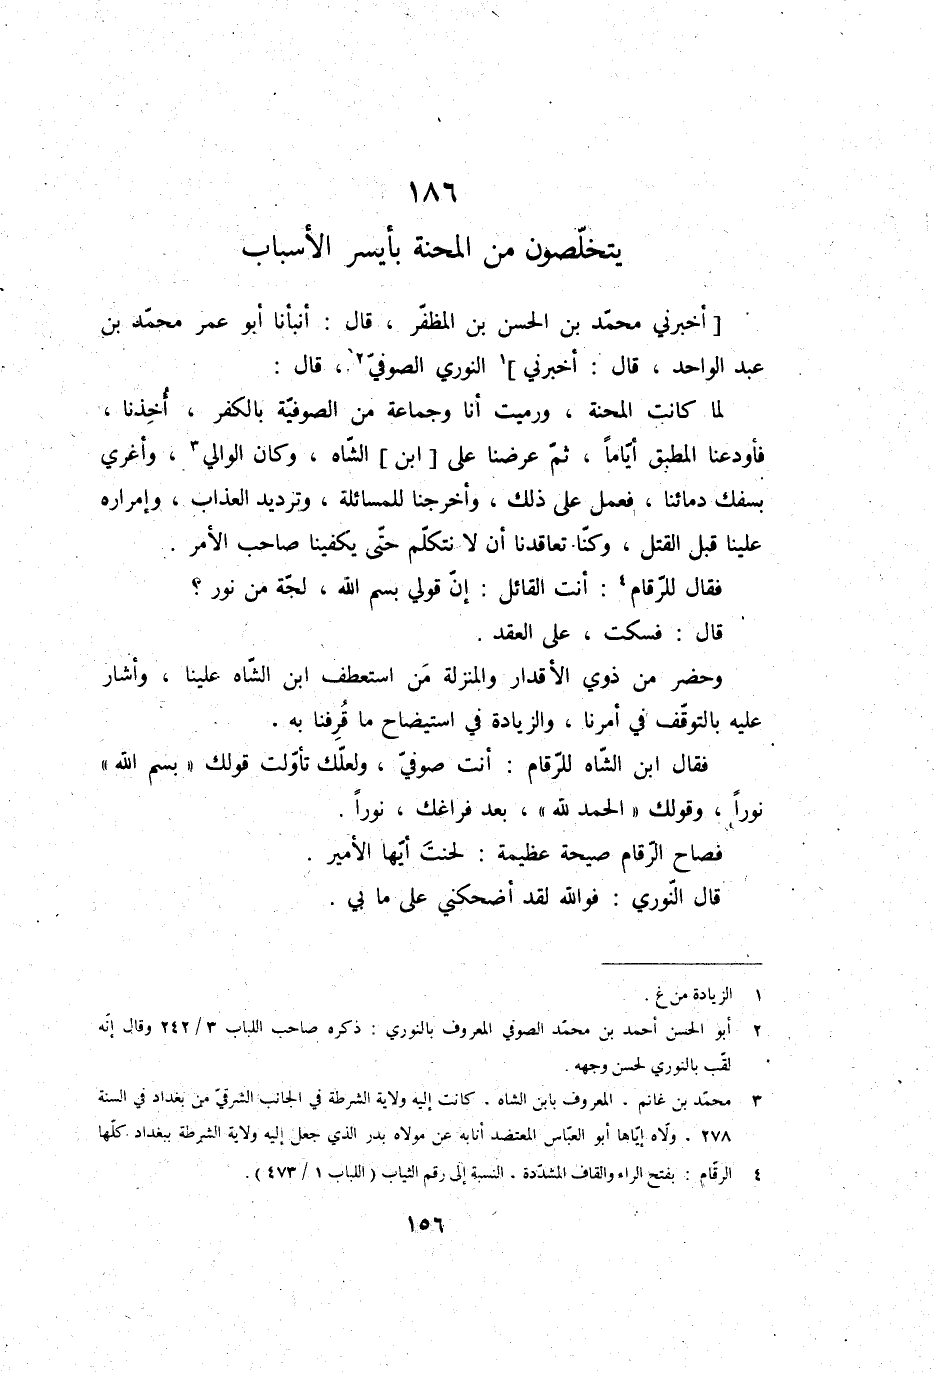 ١٨٦
يتخلّصون من المحنة بأيسر الأسباب
[ أخبرني محمّد بن الحسن بن المظفّر ، قال : أنبأنا أبو عمر محمّد بن
عبد الواحد ، قال : أخبرني ]١ النوري الصوفيّ٢ ، قال :
لما كانت المحنة ، ورميت أنا وجماعة من الصوفيّة بالكفر ، أُخِذنا ،
فأودعنا المطبق أيّاماً ، ثمّ عرضنا على [ ابن ] الشّاه ، وكان الوالي٣ ، وأغري
بسفك دمائنا ، فعمل على ذلك ، وأخرجنا للمسائلة ، وترديد العذاب ، وإمراره
علينا قبل القتل ، وكنّا تعاقدنا أن لا نتكلّم حتّى يكفينا صاحب الأمر .
فقال للرّقام٤ : أنت القائل : إنّ قولي بسم الله ، لجّة من نور ؟
قال : فسكت ، على العقد .
وحضر من ذوي الأقدار والمنزلة مَن استعطف ابن الشّاه علينا ، وأشار
عليه بالتوقّف في أمرنا ، والزيادة في استيضاح ما قُرِفنا به .
فقال ابن الشّاه للرّقام : أنت صوفيّ ، ولعلّك تأوّلت قولك « بسم الله »
نوراً ، وقولك « الحمد لله » ، بعد فراغك ، نوراً .
فصاح الرّقام صيحة عظيمة : لحنتَ أيّها الأمير .
قال النّوري : فوالله لقد أضحكني على ما بي .
١ الزيادة من غ .
٢ أبو الحسن أحمد بن محمّد الصوفي المعروف بالنوري : ذكره صاحب اللباب ٣ / ٢٤٢ وقال إنّه
لقّب بالنوري لحسن وجهه .
٣ محمّد بن غانم . المعروف بابن الشاه . كانت إليه ولاية الشرطة في الجانب الشرقيّ من بغداد في السنة
٢٧٨ . ولّاه إيّاها أبو العبّاس المعتضد أنابه عن مولاه بدر الذي جعل إليه ولاية الشرطة ببغداد كلّها
٤ الرقّام : بفتح الراء والقاف المشدّدة . النسبة إلى رقم الثياب ( اللباب ١ / ٤٧٣ ) .
١٥٦